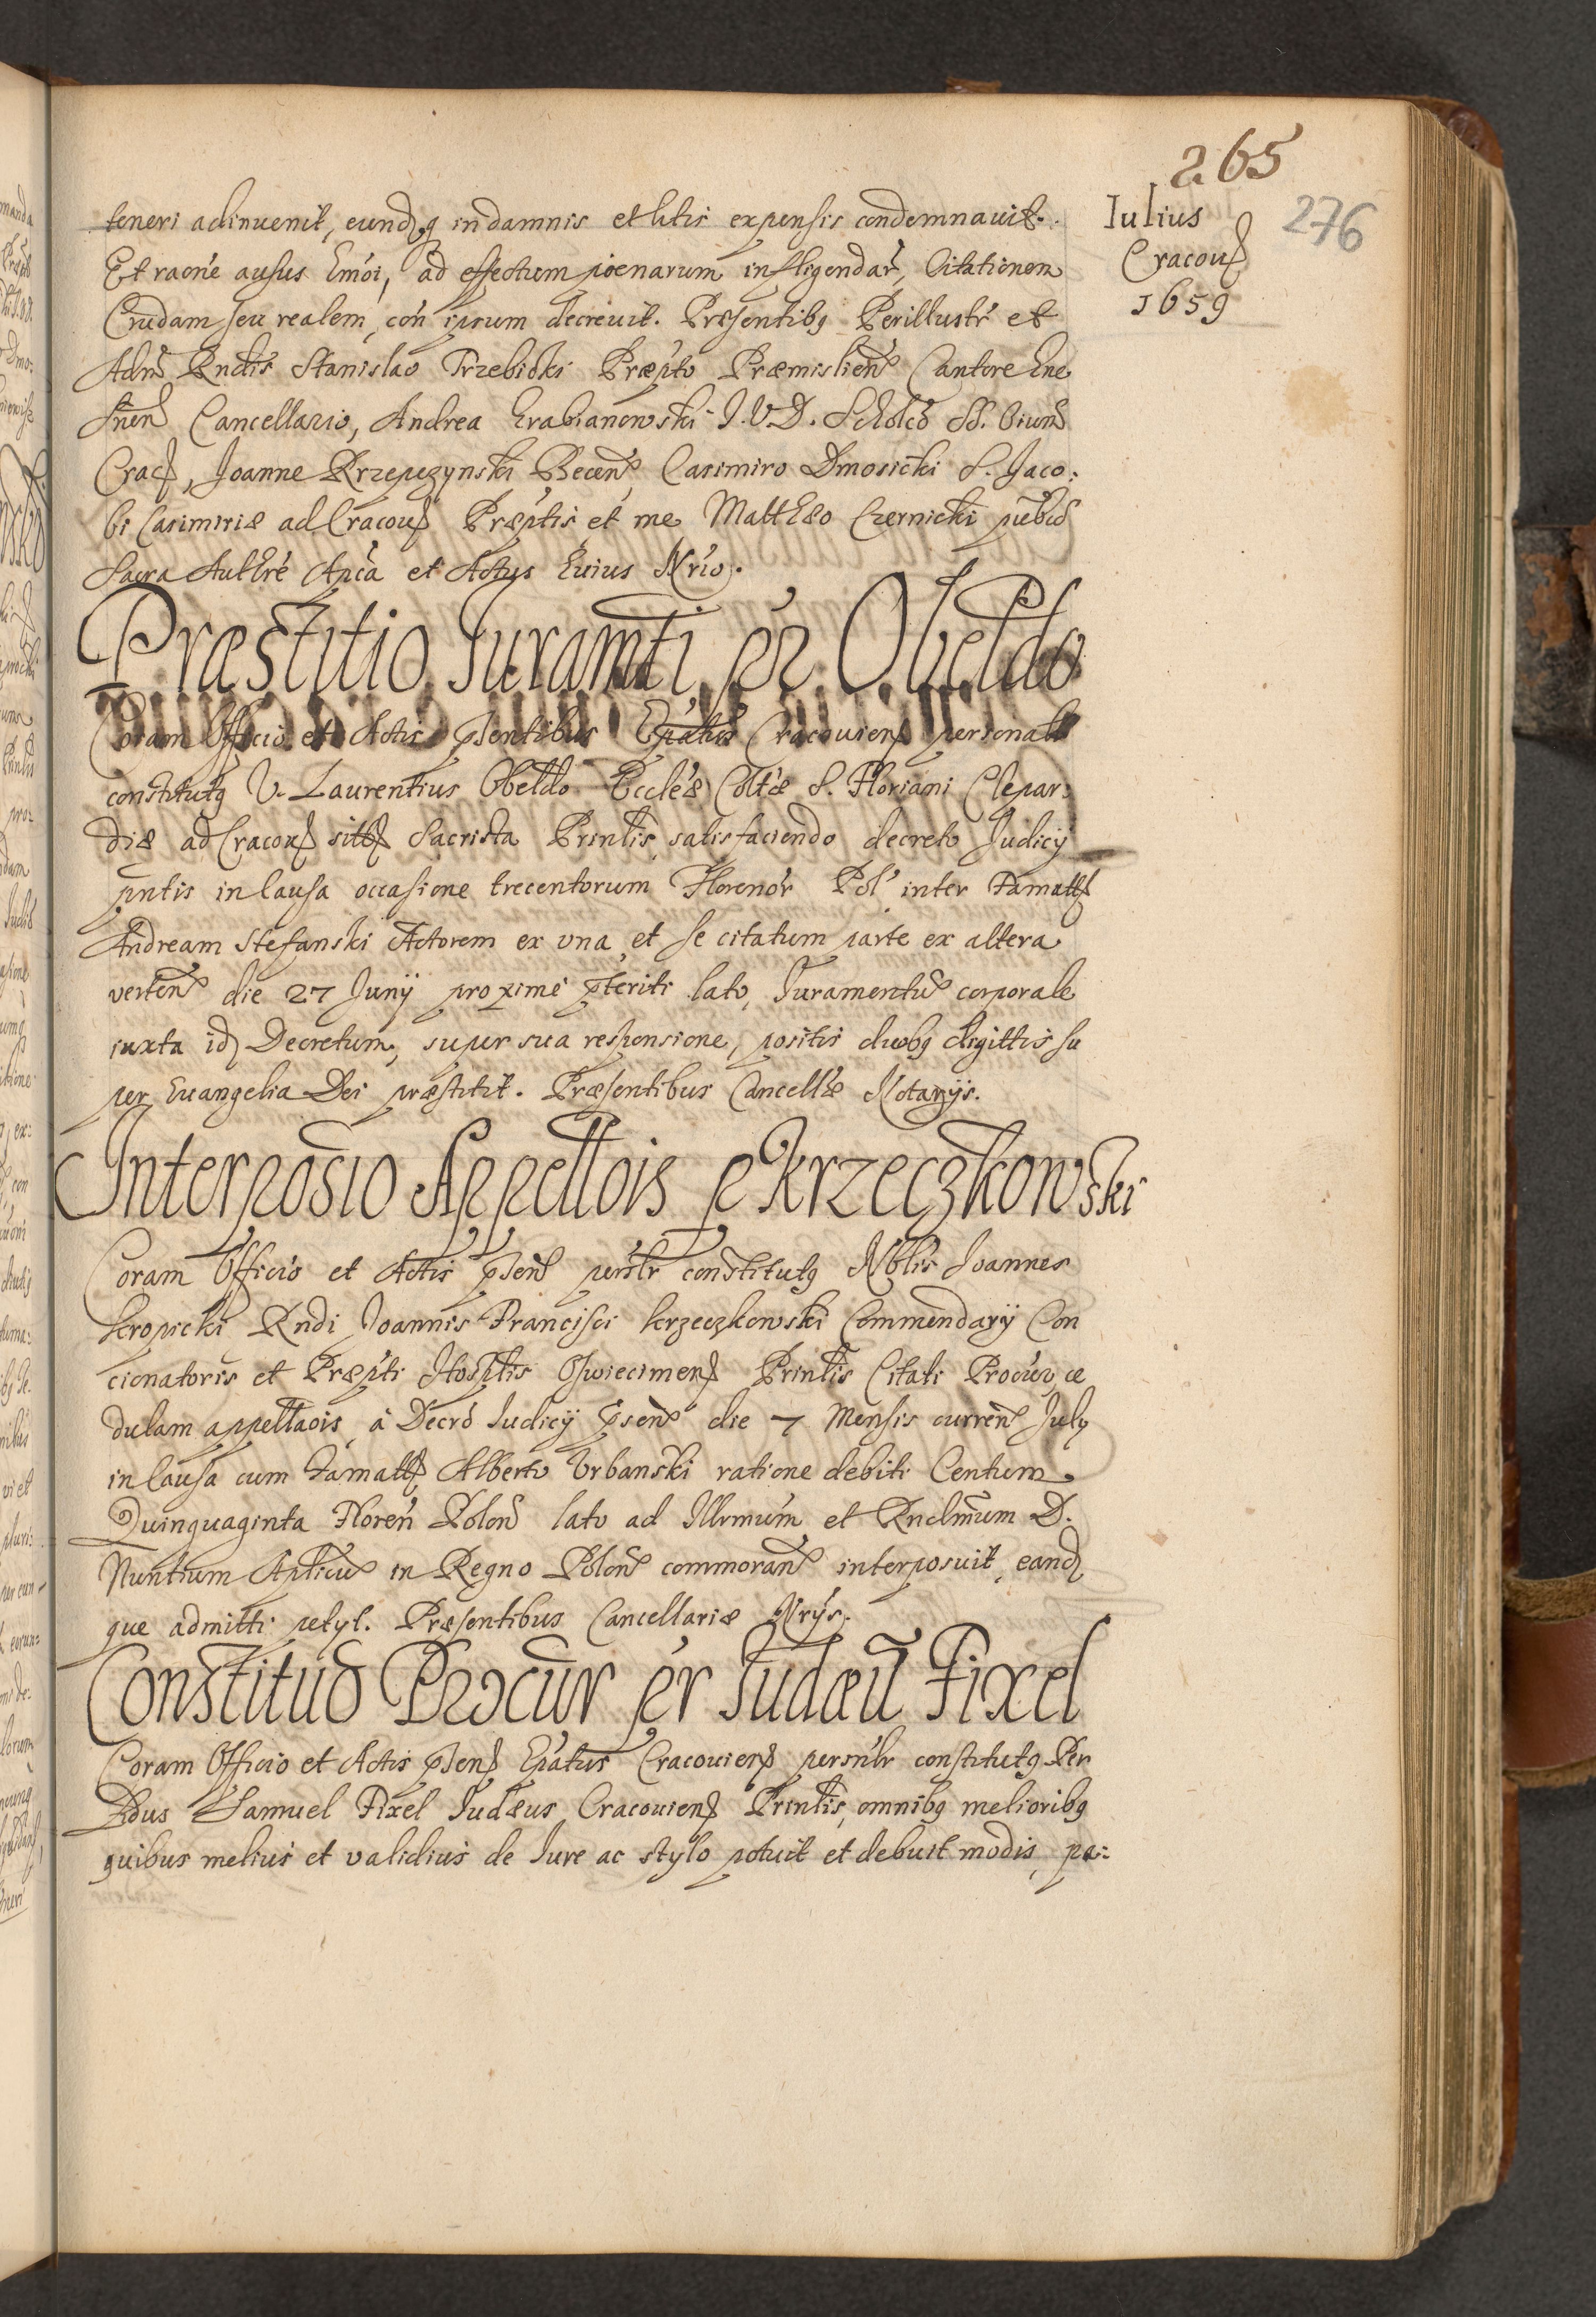 265
276
Iulius
Cracouẽ
1659
teneri adinuenit, eundq₃ in damnis et litis expensis condemnauit.
Et raõne ausus huiõi, ad effectum poenarum infligendaȓ, Citationem
Crudam seu realem, cõn ipsum decreuit. Præsentibq Perillustr̃ et
Adm̃ Rndis Stanislao Trzebicki Præpto Præmislien̄ Cantore Gne
snen̄ Cancellario, Andrea Grabianowski I.V.D. Scholco SS. Oium̄
Crac̃, Ioanne Krzepczynski Becen̄, Casimiro Dmosicki S. Jaco:
bi Casimiriæ ad Cracou̇ Præptis et me Matthæo Czernicki publcõ
Sacra Authr̃e Aplcã et Actus huius Nrio.
Præstitio Iuramti pȩr Obeldo
Coram Officio et Actis p̃sentibus Ep̃atus Cracouien̄ personalr
constitutq V. Laurentius Obeldo Ecclẽæ Coltæ S. Floriani Clepar:
diæ ad Cracou̇ sitæ Sacrista Prinlis satisfaciendo decreto Judicij
pntis in causa occasione trecentorum Florenor̃ Pol̃ inter Famatũ
Andream Stefanski Actorem ex vna, et se citatum parte ex altera
verten̄ die 27 Junij proximè p̃teriti lato, Iuramentũ corporale
iuxta id Decretum, super sua responsione, positis duobq digittis su
per Euangelia Dei præstitit. Præsentibus Cancellæ Notarijs.
Interposĩo Appellõis p Krzeczkowski
Coram Officio et Actis p̃sen̄ persnlr constitutq Nblis Ioannes
Kropicki Rndi Ioannis Francisci Krzeczkowski Commendarij Con
cionatoris et Præpti Hosptlis Oswiecimen̄ Prinlis Citati Procur, ce
dulam appellaõis à Decrõ Iudicij p̃sen̄ die 7 Mensis curren̄ July
in Causa cum Famatõ Alberto Vrbanski ratione debiti Centum
Quinquaginta Floren̄ Polon̄ lato ad Illrmum et Rndmum D.
Nuntium Aplicũ in Regno Polon̄ commoran̄ interposuit, eand
que admitti petyt. Præsentibus Cancellariæ Nrijs.
Constituõ Procur̃ pȩr Iudæũ Fixel
Coram Officio et Actis p̃sen̄ Epãtus Cracouien̄ persnlr constitutq Per
fidus Samuel Fixel Iudæus Cracouien̄ Prinlis, omnibq melioribq
quibus melius et validius de Iure ac stylo potuit et debuit modis, pa: